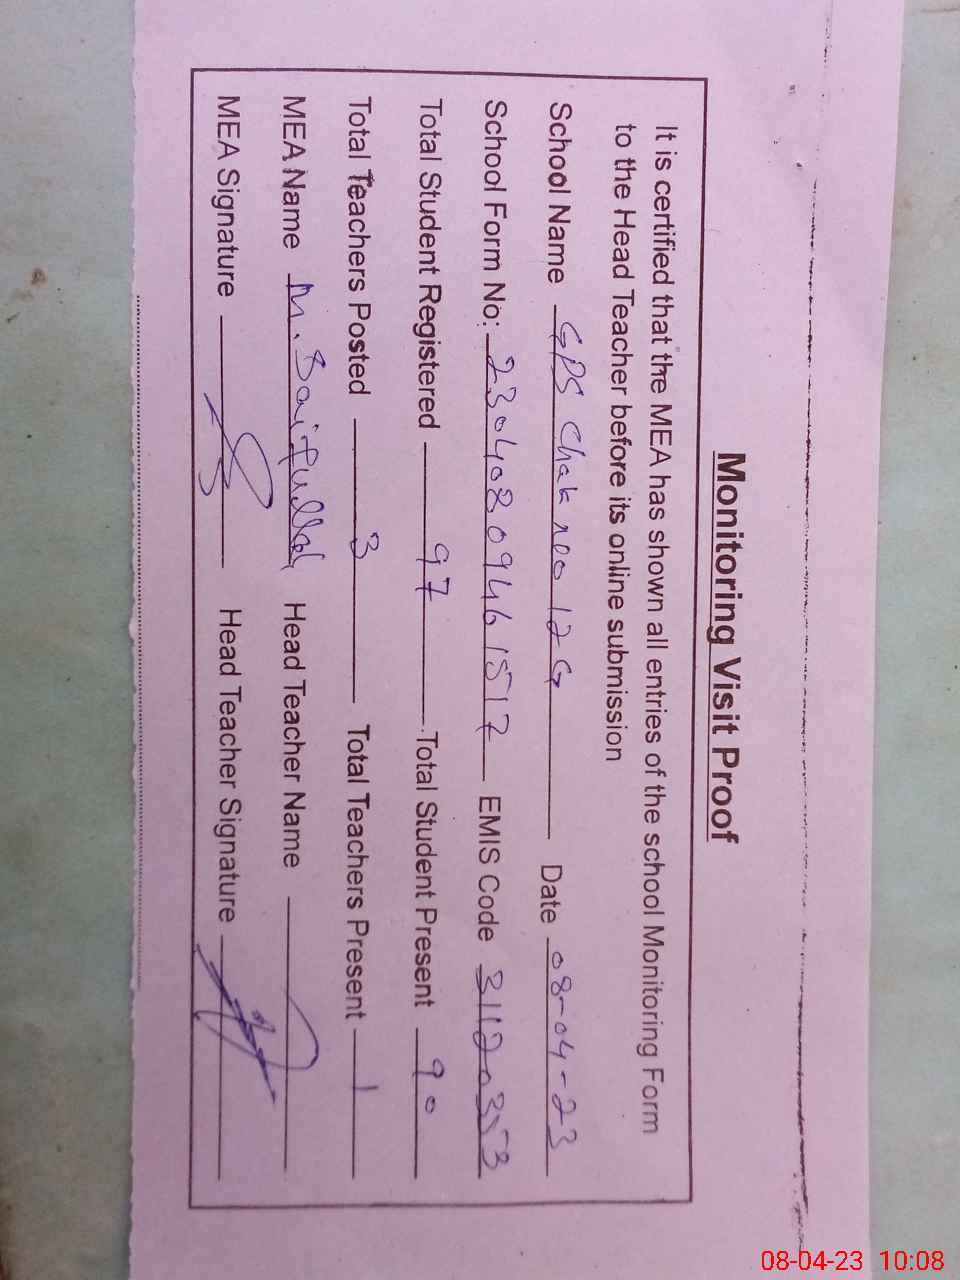 Monitoring Visit Proof
It is certified that the MEA has shown all entries of the school Monitoring Form
to the Head Teacher before its online submission
School Name GPS Chak noo 12 G Date 08-04-23
School Form No: 23040809461517 EMIS Code 31120353
Total Student Registered 97 Total Student Present 90
Total Teachers Posted 3 Total Teachers Present 1
MEA Name M. Saifullah Head Teacher Name
MEA Signature Head Teacher Signature
08-04-23 10:08